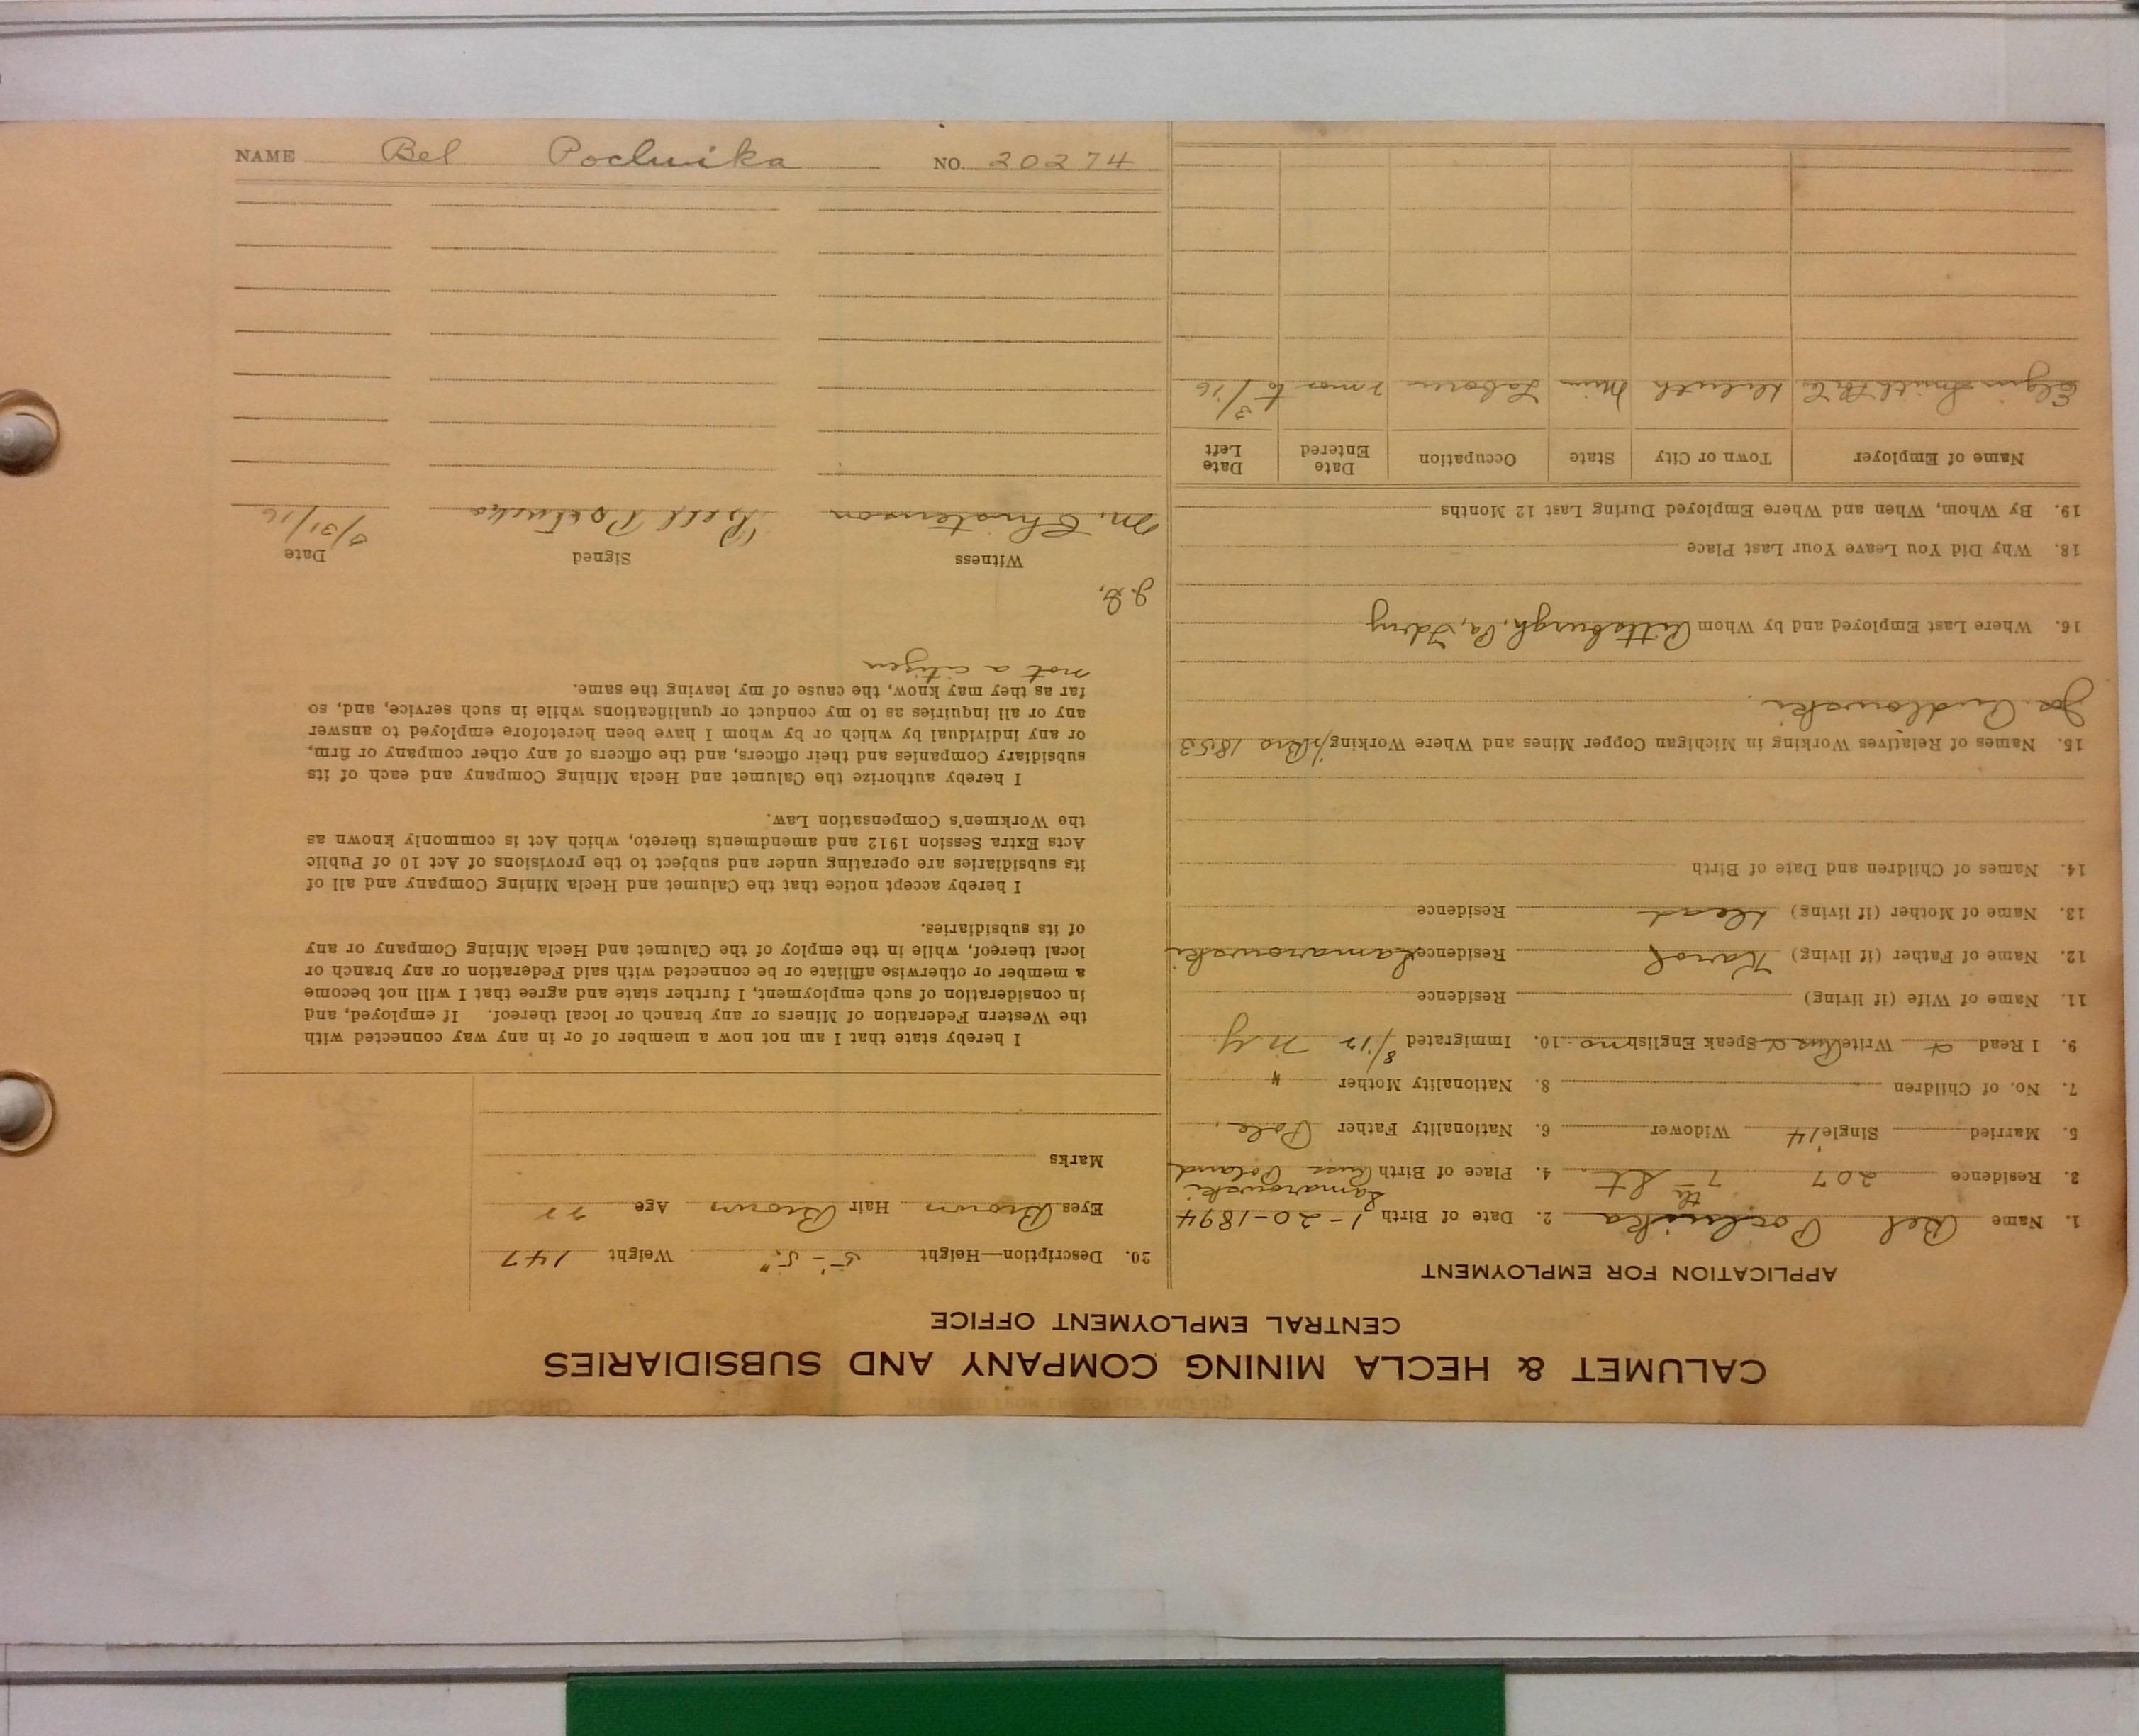 NAME Bel Pochnika NO. 20274
CALUMET & HECLA MINING COMPANY AND SUBSIDIARIES
CENTRAL EMPLOYMENT OFFICE
APPLICATION FOR EMPLOYMENT
1. Name Bel Pochnika 2. Date of Birth 1-20-1894
3. Residence 207 7th St 4. Place of Birth Russ Poland
5. Married Single 14 Widower 6. Nationality Father Pole
7. No. of Children 8. Nationality Mother "
9. I Read & Write Rus & Speak English no. 10. Immigrated 8/12 N.Y.
11. Name of Wife (if living) Residence
12. Name of Father (if living) Karol Residence
13. Name of Mother (if living) Dead Residence
14. Names of Children and Date of Birth
15. Names of Relatives Working in Michigan Copper Mines and Where Working Bro 1853
Jos.
16. Where Last Employed and by Whom Pittsburgh, Pa, Fdry
18. Why Did You Leave Your Last Place
19. By Whom, When and Where Employed During Last 12 Months
Name of Employer Town or City State Occupation Date Entered Date Left
Duluth Minn Laborer 2 mos to 3/16
20. Description—Height 5'-5" Weight 147
Eyes Brown Hair Brown Age 22
Marks
I hereby state that I am not now a member of or in any way connected with
the Western Federation of Miners or any branch or local thereof. If employed, and
in consideration of such employment, I further state and agree that I will not become
a member or otherwise affiliate or be connected with said Federation or any branch or
local thereof, while in the employ of the Calumet and Hecla Mining Company or any
of its subsidiaries.
I hereby accept notice that the Calumet and Hecla Mining Company and all of
its subsidiaries are operating under and subject to the provisions of Act 10 of Public
Acts Extra Session 1912 and amendments thereto, which Act is commonly known as
the Workmen's Compensation Law.
I hereby authorize the Calumet and Hecla Mining Company and each of its
subsidiary Companies and their officers, and the officers of any other company or firm,
or any individual by which or by whom I have been heretofore employed to answer
any or all inquiries as to my conduct or qualifications while in such service, and, so
far as they may know, the cause of my leaving the same.
not a citizen
Witness Signed Date
M. Christenson Bell /31/16